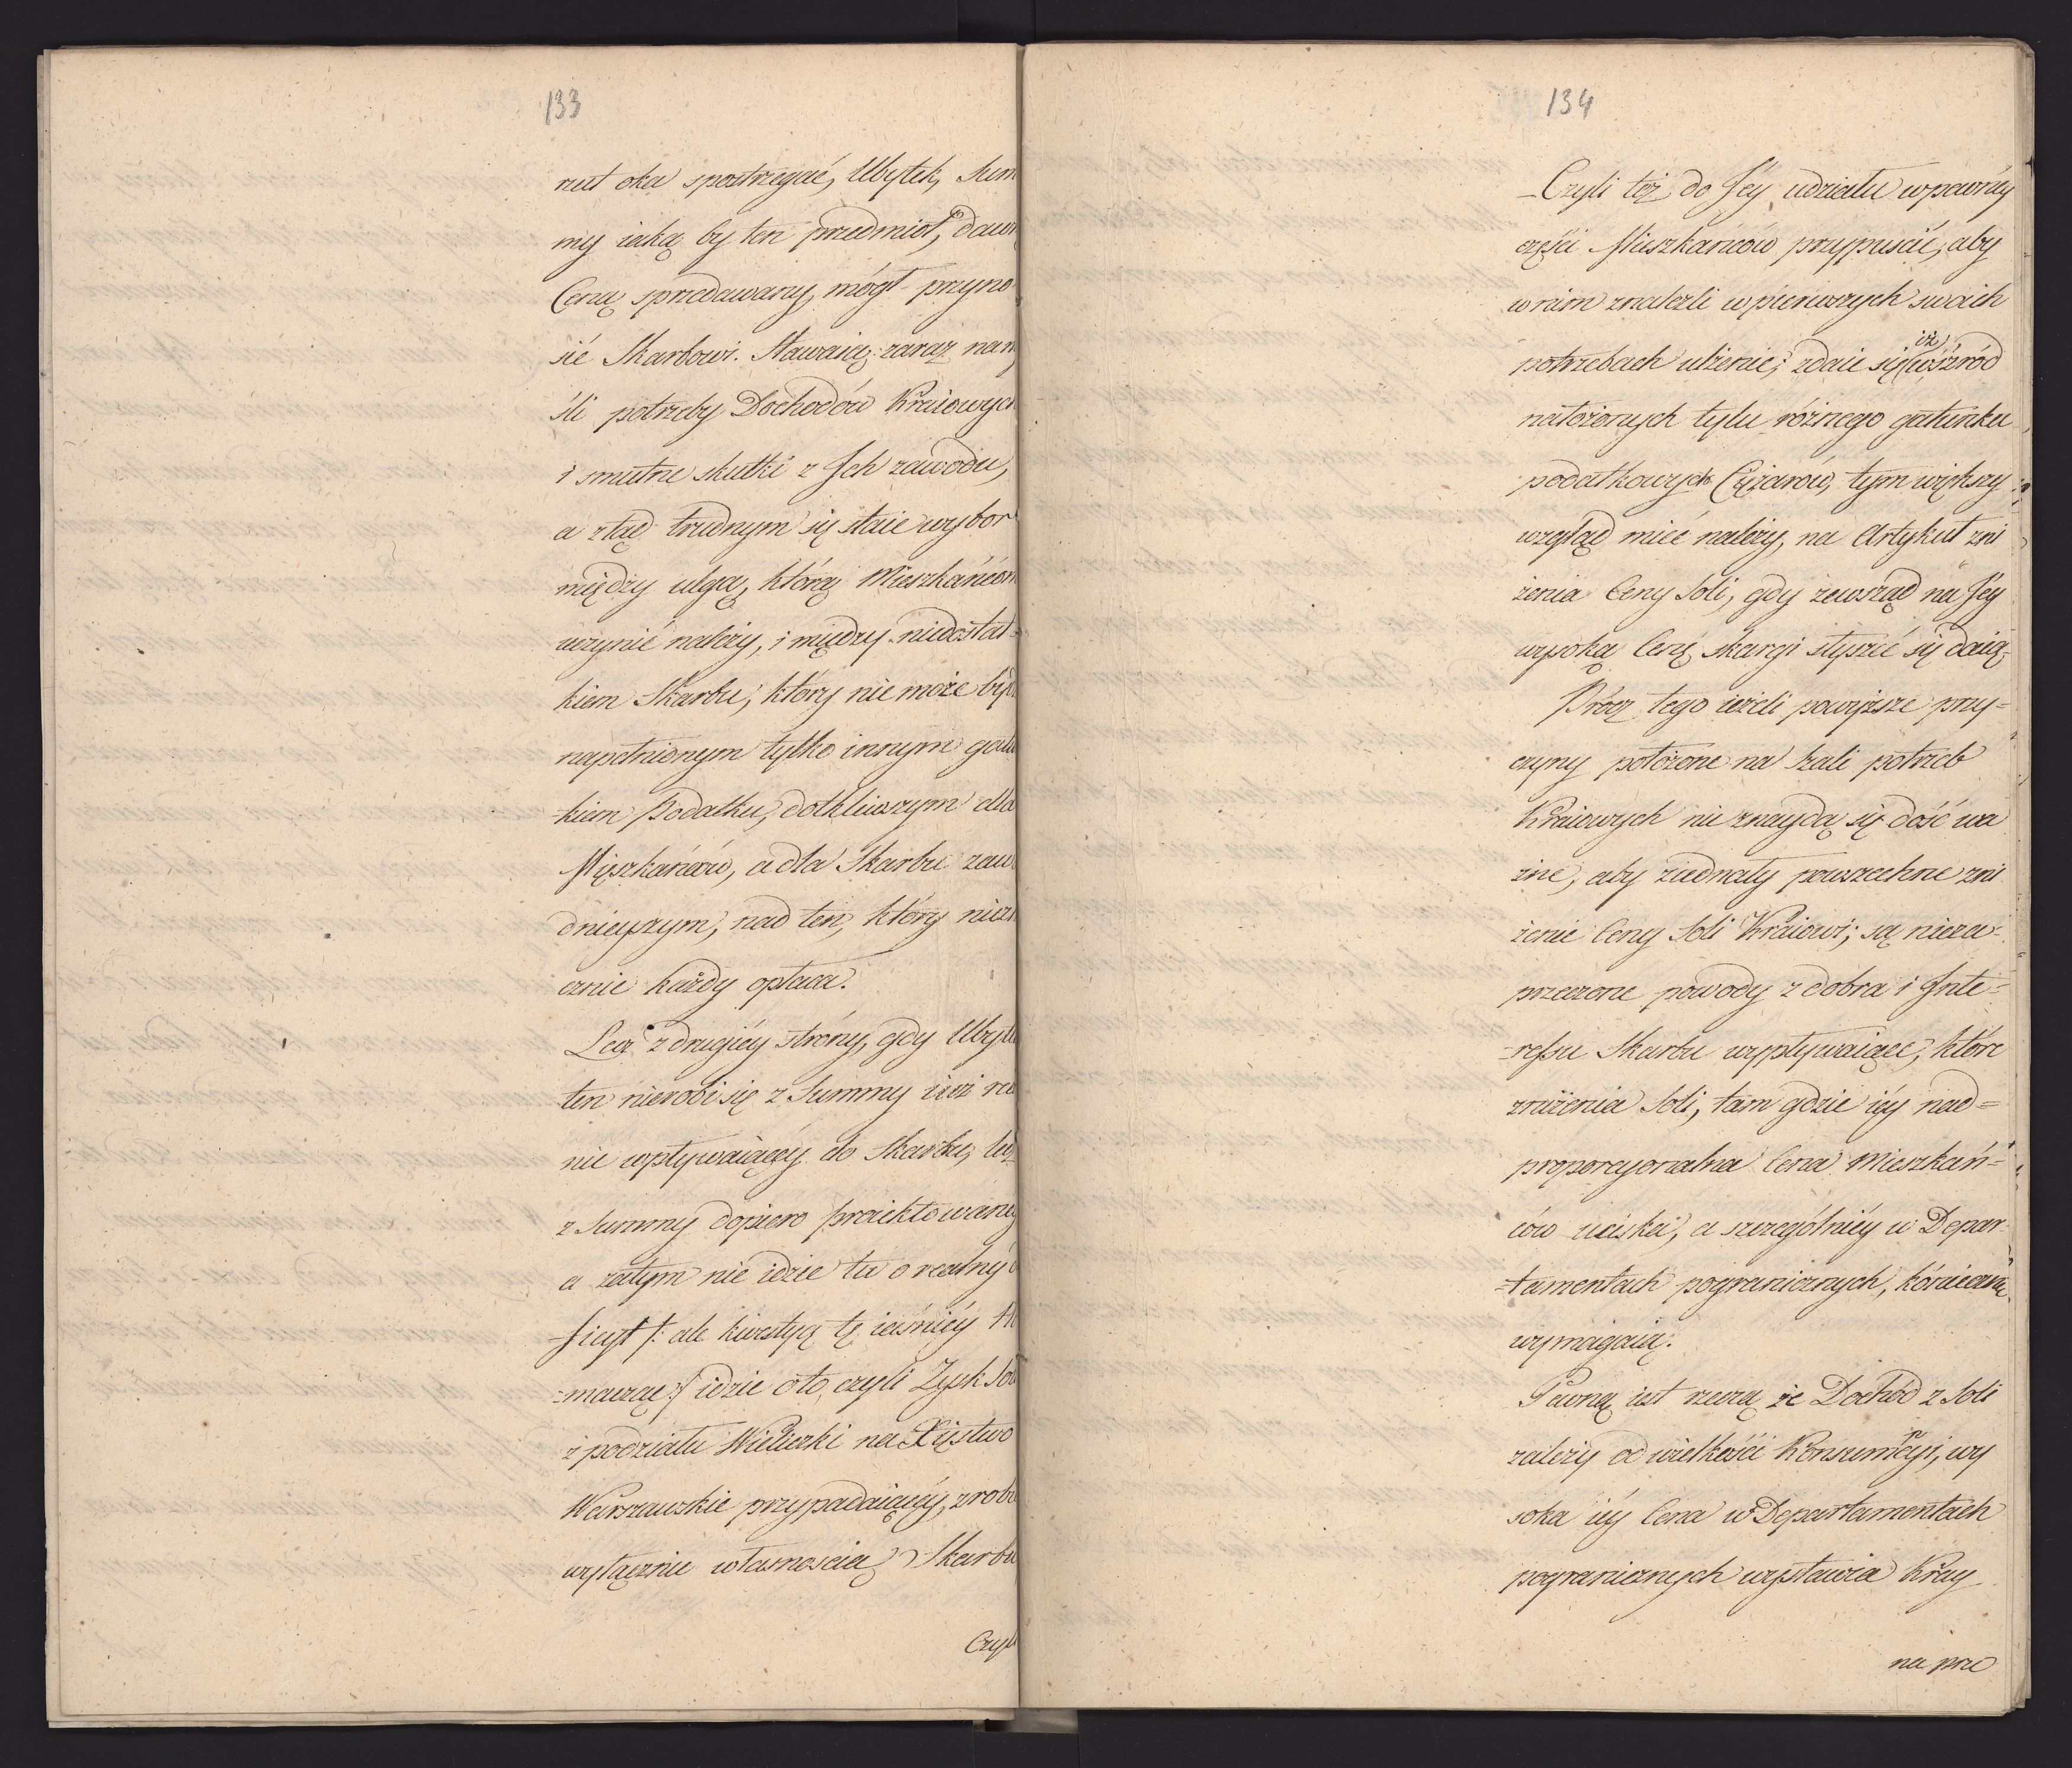 133
rzut oka spostrzegać, Ubytek, Sum
my iaką by ten przedmiot, dawn
Ceną sprzedawany, mógł przyno
sić Skarbowi. Stawaią zaraz na m
śli potrzeby Dochodów Kraiowych
i smutne skutki z Ich zawodu,
a ztąd trudnym się staie wybor
między ulgą, którą Mieszkańcom
uczynić należy, i między niedostat=
kiem Skarbu, który nie może być
napełnionym tylko innym gatu
-kiem Podatku, dotkliwszym dla
Mięszkańców, a dla Skarbu zawo
dnieyszym, nad ten, który niezn
cznie każdy opłaca.
Lecz z drugiéy stróny, gdy Ubyte
ten nierobi się z Summy iuż re
nie wpływaiącéy do Skarbu, lecz
z Summy dopiero proiektowanéy
a zatym nie idzie tu o realny d
ficyt /: ale kwestyą tę iaśniéy tłó
=macząc :/ idzie oto, czyli Zysk Sol
z podziału Wieliczki na Xięstwo
Warszawskie przypadaiącéy, zrobi
wyłącznie własnoscią Skarbu
Czyli
134
-Czyli też do Jéy udziału w pewnéy
części Mieszkańców przypuścić, aby
w nim znaleźli w pierwszych swoich
potrzebach ulżenie; zdaie się iż wśzród
nałożonych tylu różnego gatunku
podatkowych Ciężarów, tym większy
wzgląd mieć należy, na Artykuł zni
żenia Ceny Soli, gdy zewsząd na Jéy
wysoką Cenę skargi słyszeć się daią.
Prócz tego ieżeli powyższe przy=
czyny położone na szali potrzeb
Kraiowych nie znaydą się dość wa
żne, aby ziednały powszechne zni
żenie Ceny Soli Kraiowi; są nieza=
przeczone powody z dobra i Inte=
-ressu Skarbu wypływaiące, które
zniżenia Soli, tam gdzie iéy nad=
proporcyonalna Cena Mieszkań=
ców uciska, a szczególniéy w Depar
-tamentach pogranicznych, kóniecznie
wymagaią.
Pewną iest rzeczą że Dochód z Soli
zależy od wielkości Konsumpcyi, wy
soka iéy Cena w Departamentach
pogranicznych wystawia Kray
na prze